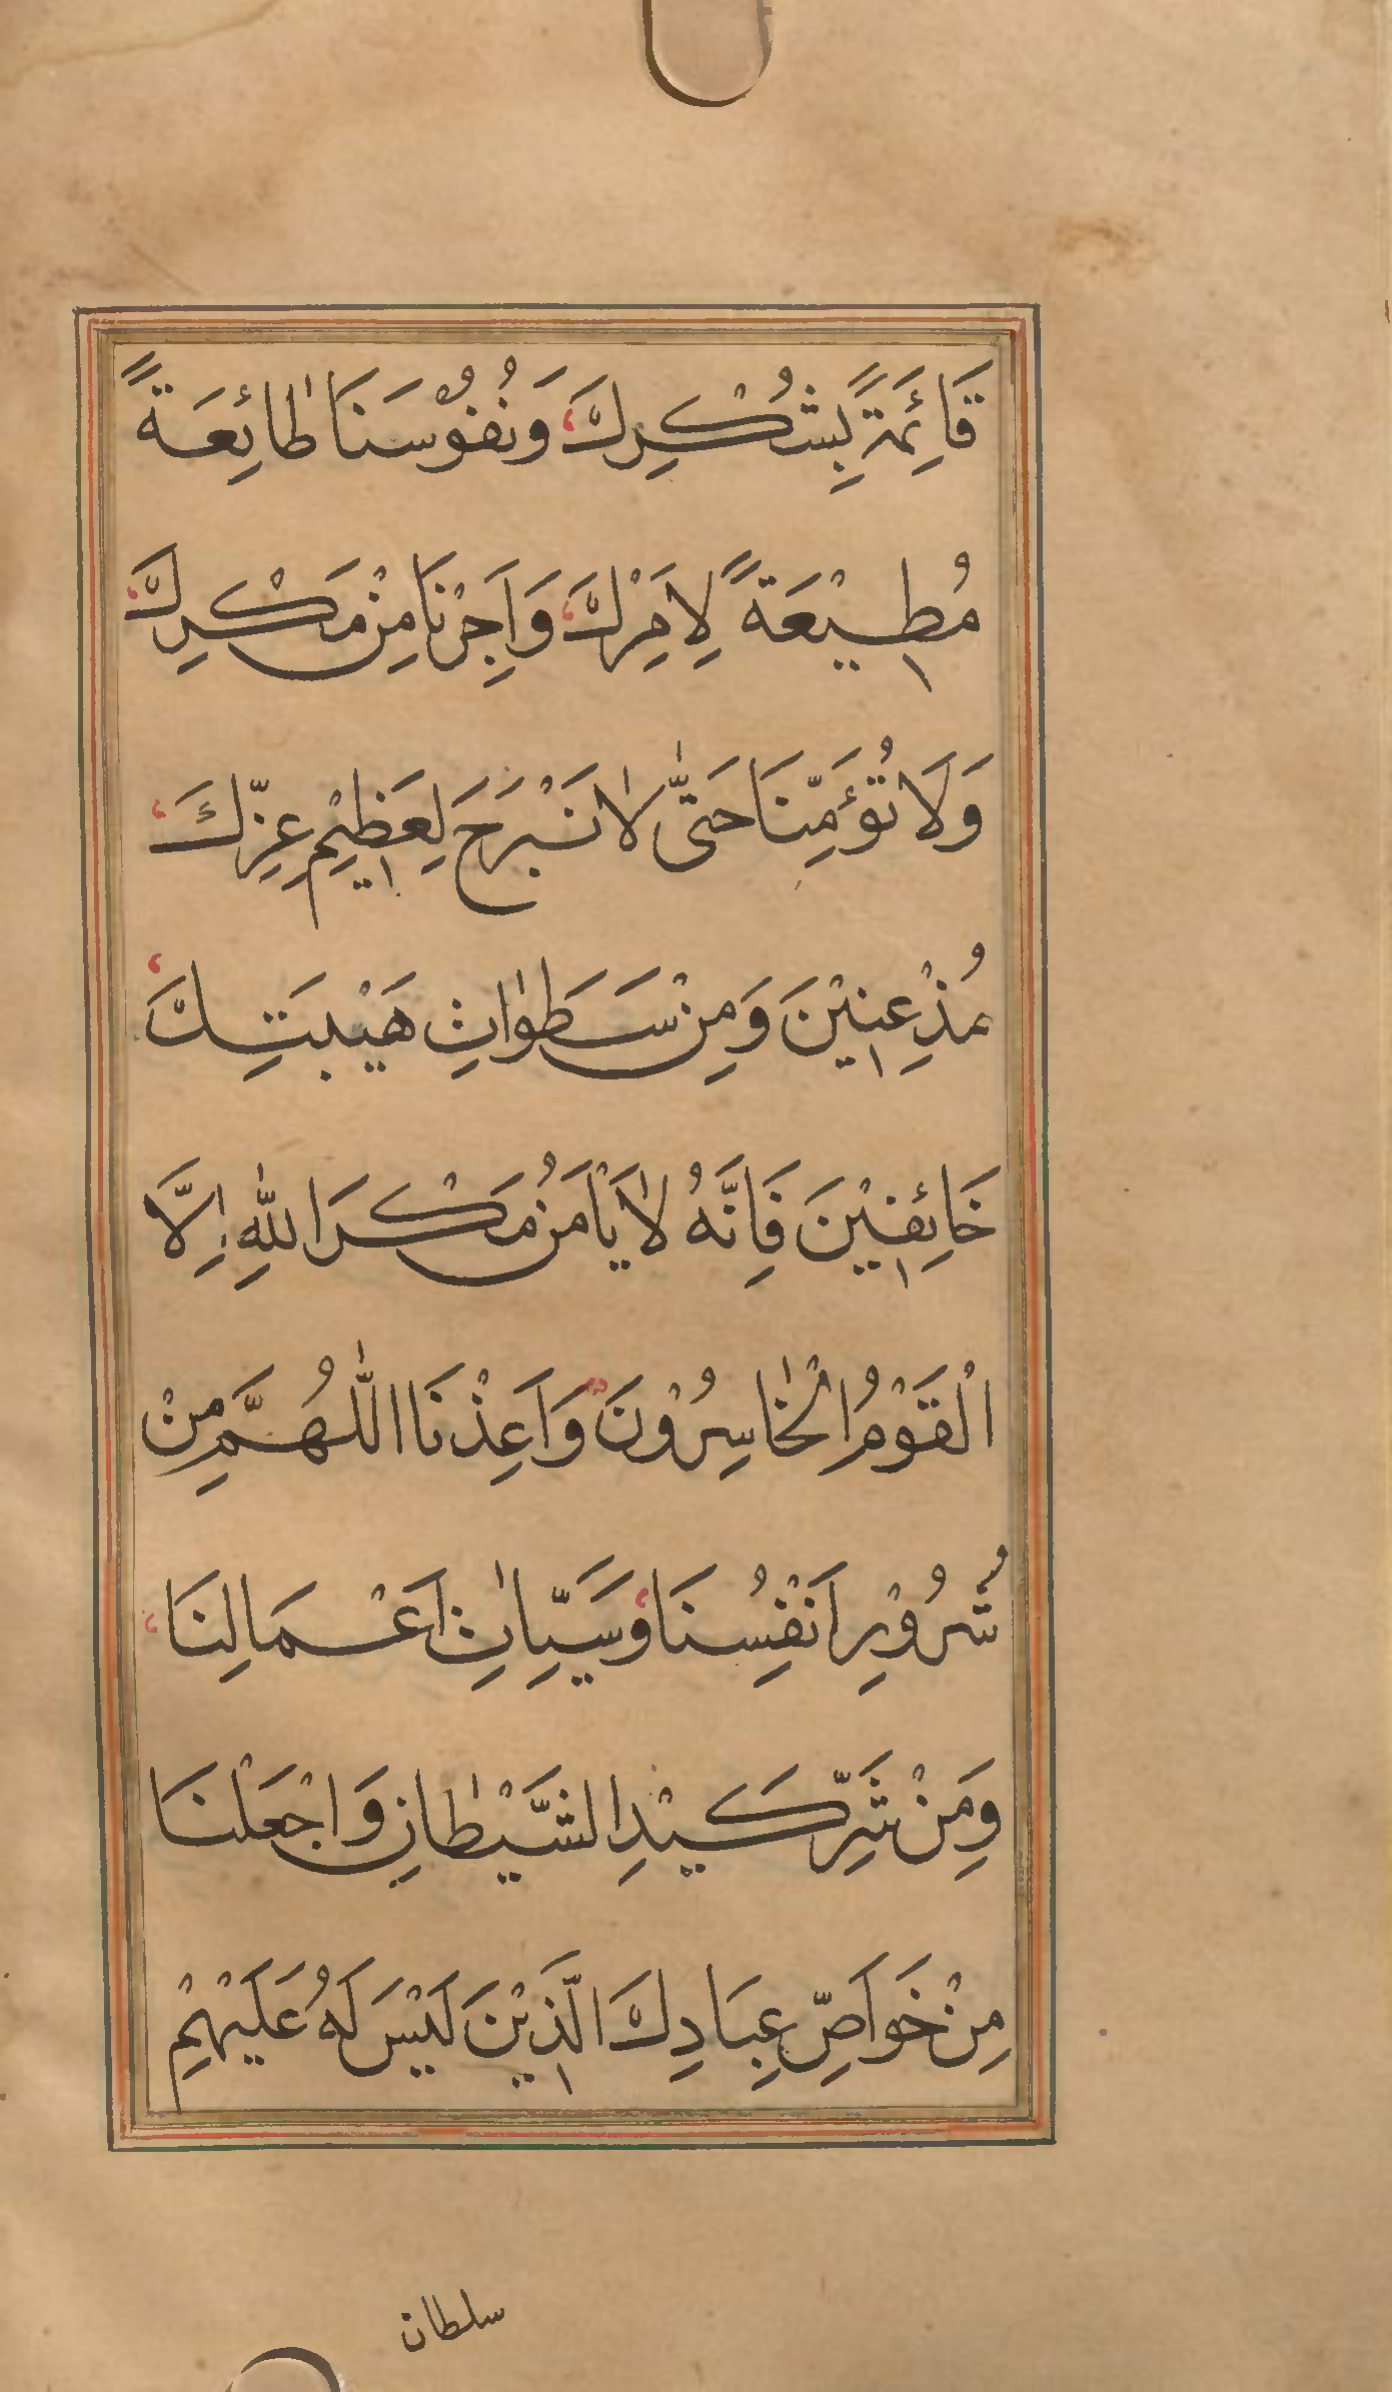 قَائِمَةً بِشُكْرِكَ وَنُفُوْسَنَا طَائِعَةً
مُطِيْعَةً لِاَمْرِكَ وَاَجِرْنَا مِنْ مَكْرِكَ
وَلَا تُؤَمِّنَّا حَتّٰى لَا نَبْرَحَ لِعَظِيْمِ عِزِّكَ
مُذْعِنِيْنَ وَمِنْ سَطَوٰاتِ هَيْبَتِكَ
خَائِفِيْنَ فَاِنَّهُ لَا يَاْمَنُ مَكْرَ اللهِ اِلَّا
الْقَوْمُ الْخٰاسِرُوْنَ وَاَعِذْنَا اللّٰهُمَّ مِنْ
شُرُوْرِ اَنْفُسِنَا وَسَيِّاٰتِ اَعْمَالِنَا
وَمِنْ شَرِّ كَيْدِ الشَّيْطٰانِ وَاجْعَلْنَا
مِنْ خَوَاَصِّ عِبَادِكَ الَّذِيْنَ لَيْسَ لَهُ عَلَيْهِمْ
سلطان